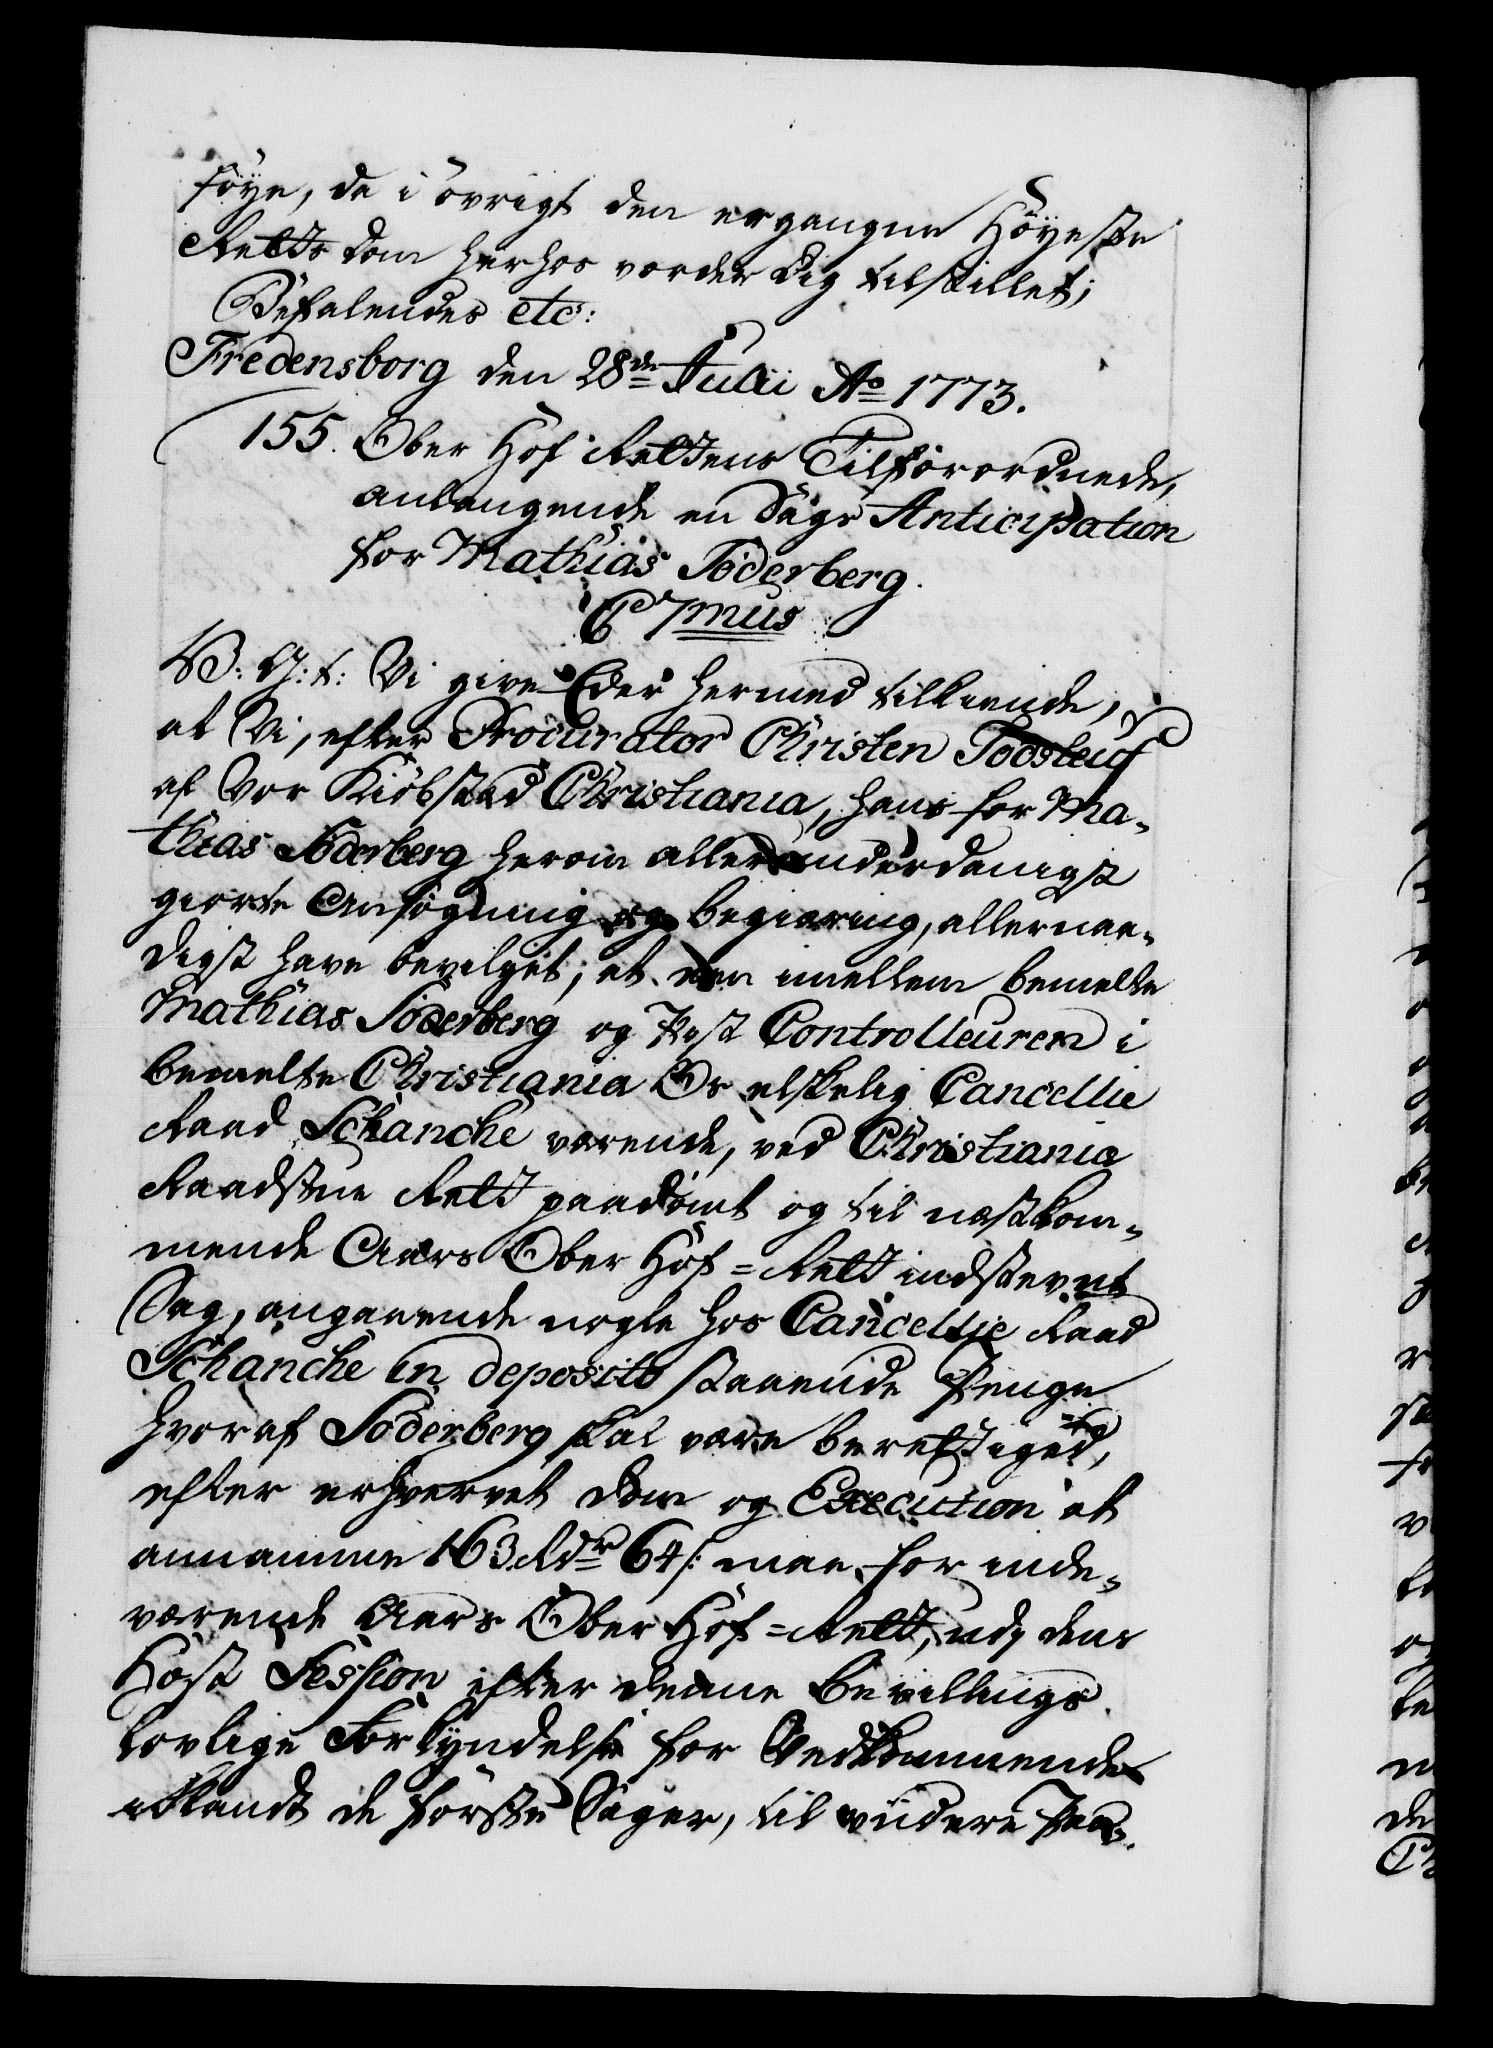 föye, da i övrigt den ergangne Höyeste
Retts Dom herhos vorder Dig tilstillet;
Befalendes etc:
Fredensborg den 28de Julii Ao 1773.
155. Ober Hof Rettens Tilforordnede,
anlangende en Sags Anticipation
for Mathias Söderberg.
C 7mus
V: G: t: Vi give Eder hermed tilkiende,
at Vi, efter Procurator Christen
af Vor Kiöbstad Christiania, hans for Ma-
thias Söderberg herom allerunderdanigst
giorte Ansögning og begiæring, allernaa-
digst have bevilget; at den imellem bemelte
Mathias Söderberg og Post Controlleuren i
bemelte Christiania Os elskelig Cancellie
Raad Schanche værende, ved Christiania
Raadstue Rett paadömt og til næstkom-
mende Aars Ober Hof=Rett indstevnt
Sag, angaaende nogle hos Cancellie Raad
Schanche in deposito staaende Penge
hvoraf Söderberg skal være berettiged,
efter erhvervet Dom og Execution at
annamme 163 Rdr 64 s: maa for inde-
værende Aars Ober Hof=Rett, udj dens
Höst Session efter denne Bevillings
lovlige Forkyndelse for Vedkommende
iblandt de förste Sager, til viidere Paa-